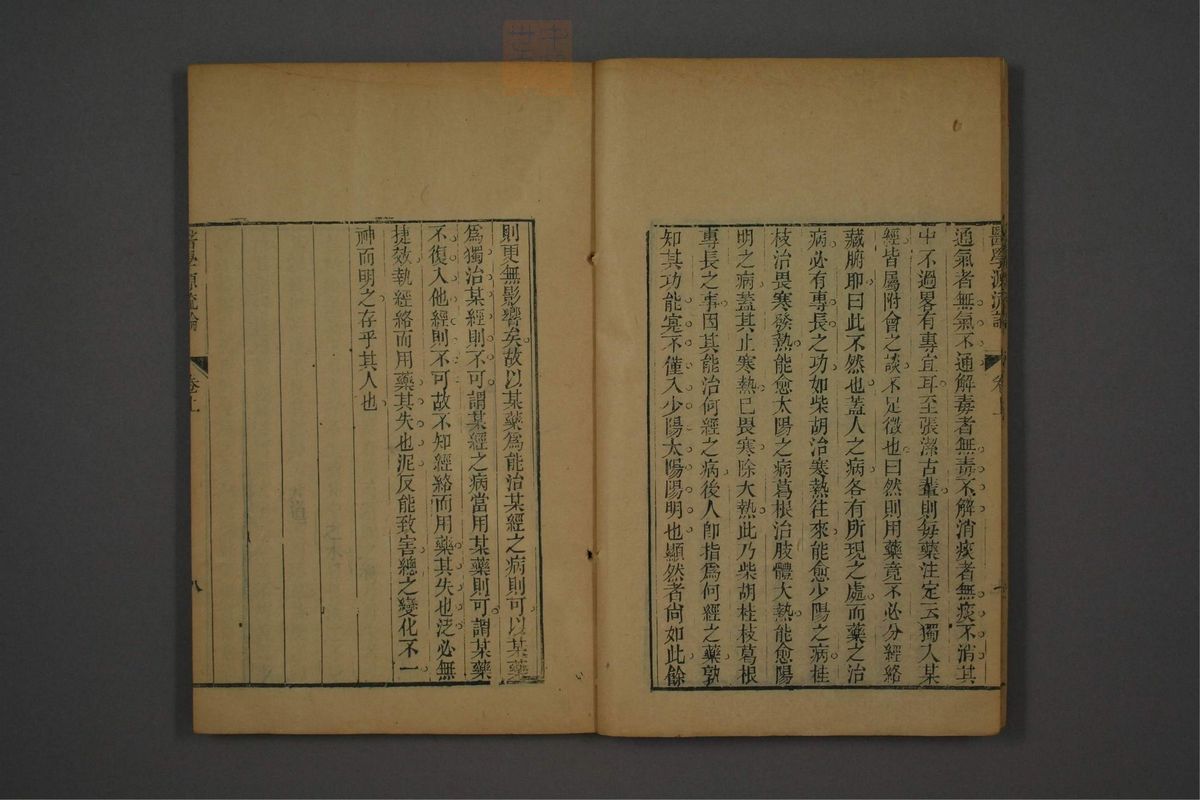 醫學源流論
通氣者無氣不通解毒者無毒不解消痰者無痰不消其
中不過畧有專宜耳至張潔古輩則每藥注定云獨入某
經皆屬附會之談不足徵也曰然則用藥竟不必分經絡
藏腑耶曰此不然也蓋人之病各有所現之處而藥之治
病必有專長之功如柴胡治寒熱往來能愈少陽之病桂
枝治畏寒發熱能愈太陽之病葛根治肢體大熱能愈陽
明之病蓋其止寒熱已畏寒除大熱此乃柴胡桂枝葛根
專長之事因其能治何經之病後人卽指為何經之藥孰
知其功能寔不僅入少陽太陽陽明也顯然者尙如此餘
則更無影響矣故以某藥為能治某經之病則可以某藥
為獨治某經則不可謂某經之病當用某藥則可謂某藥
不復入他經則不可故不知經絡而用藥其失也泛必無
捷效執經絡而用藥其失也泥反能致害總之變化不一
神而明之存乎其人也
醫學源流論
卷上
八